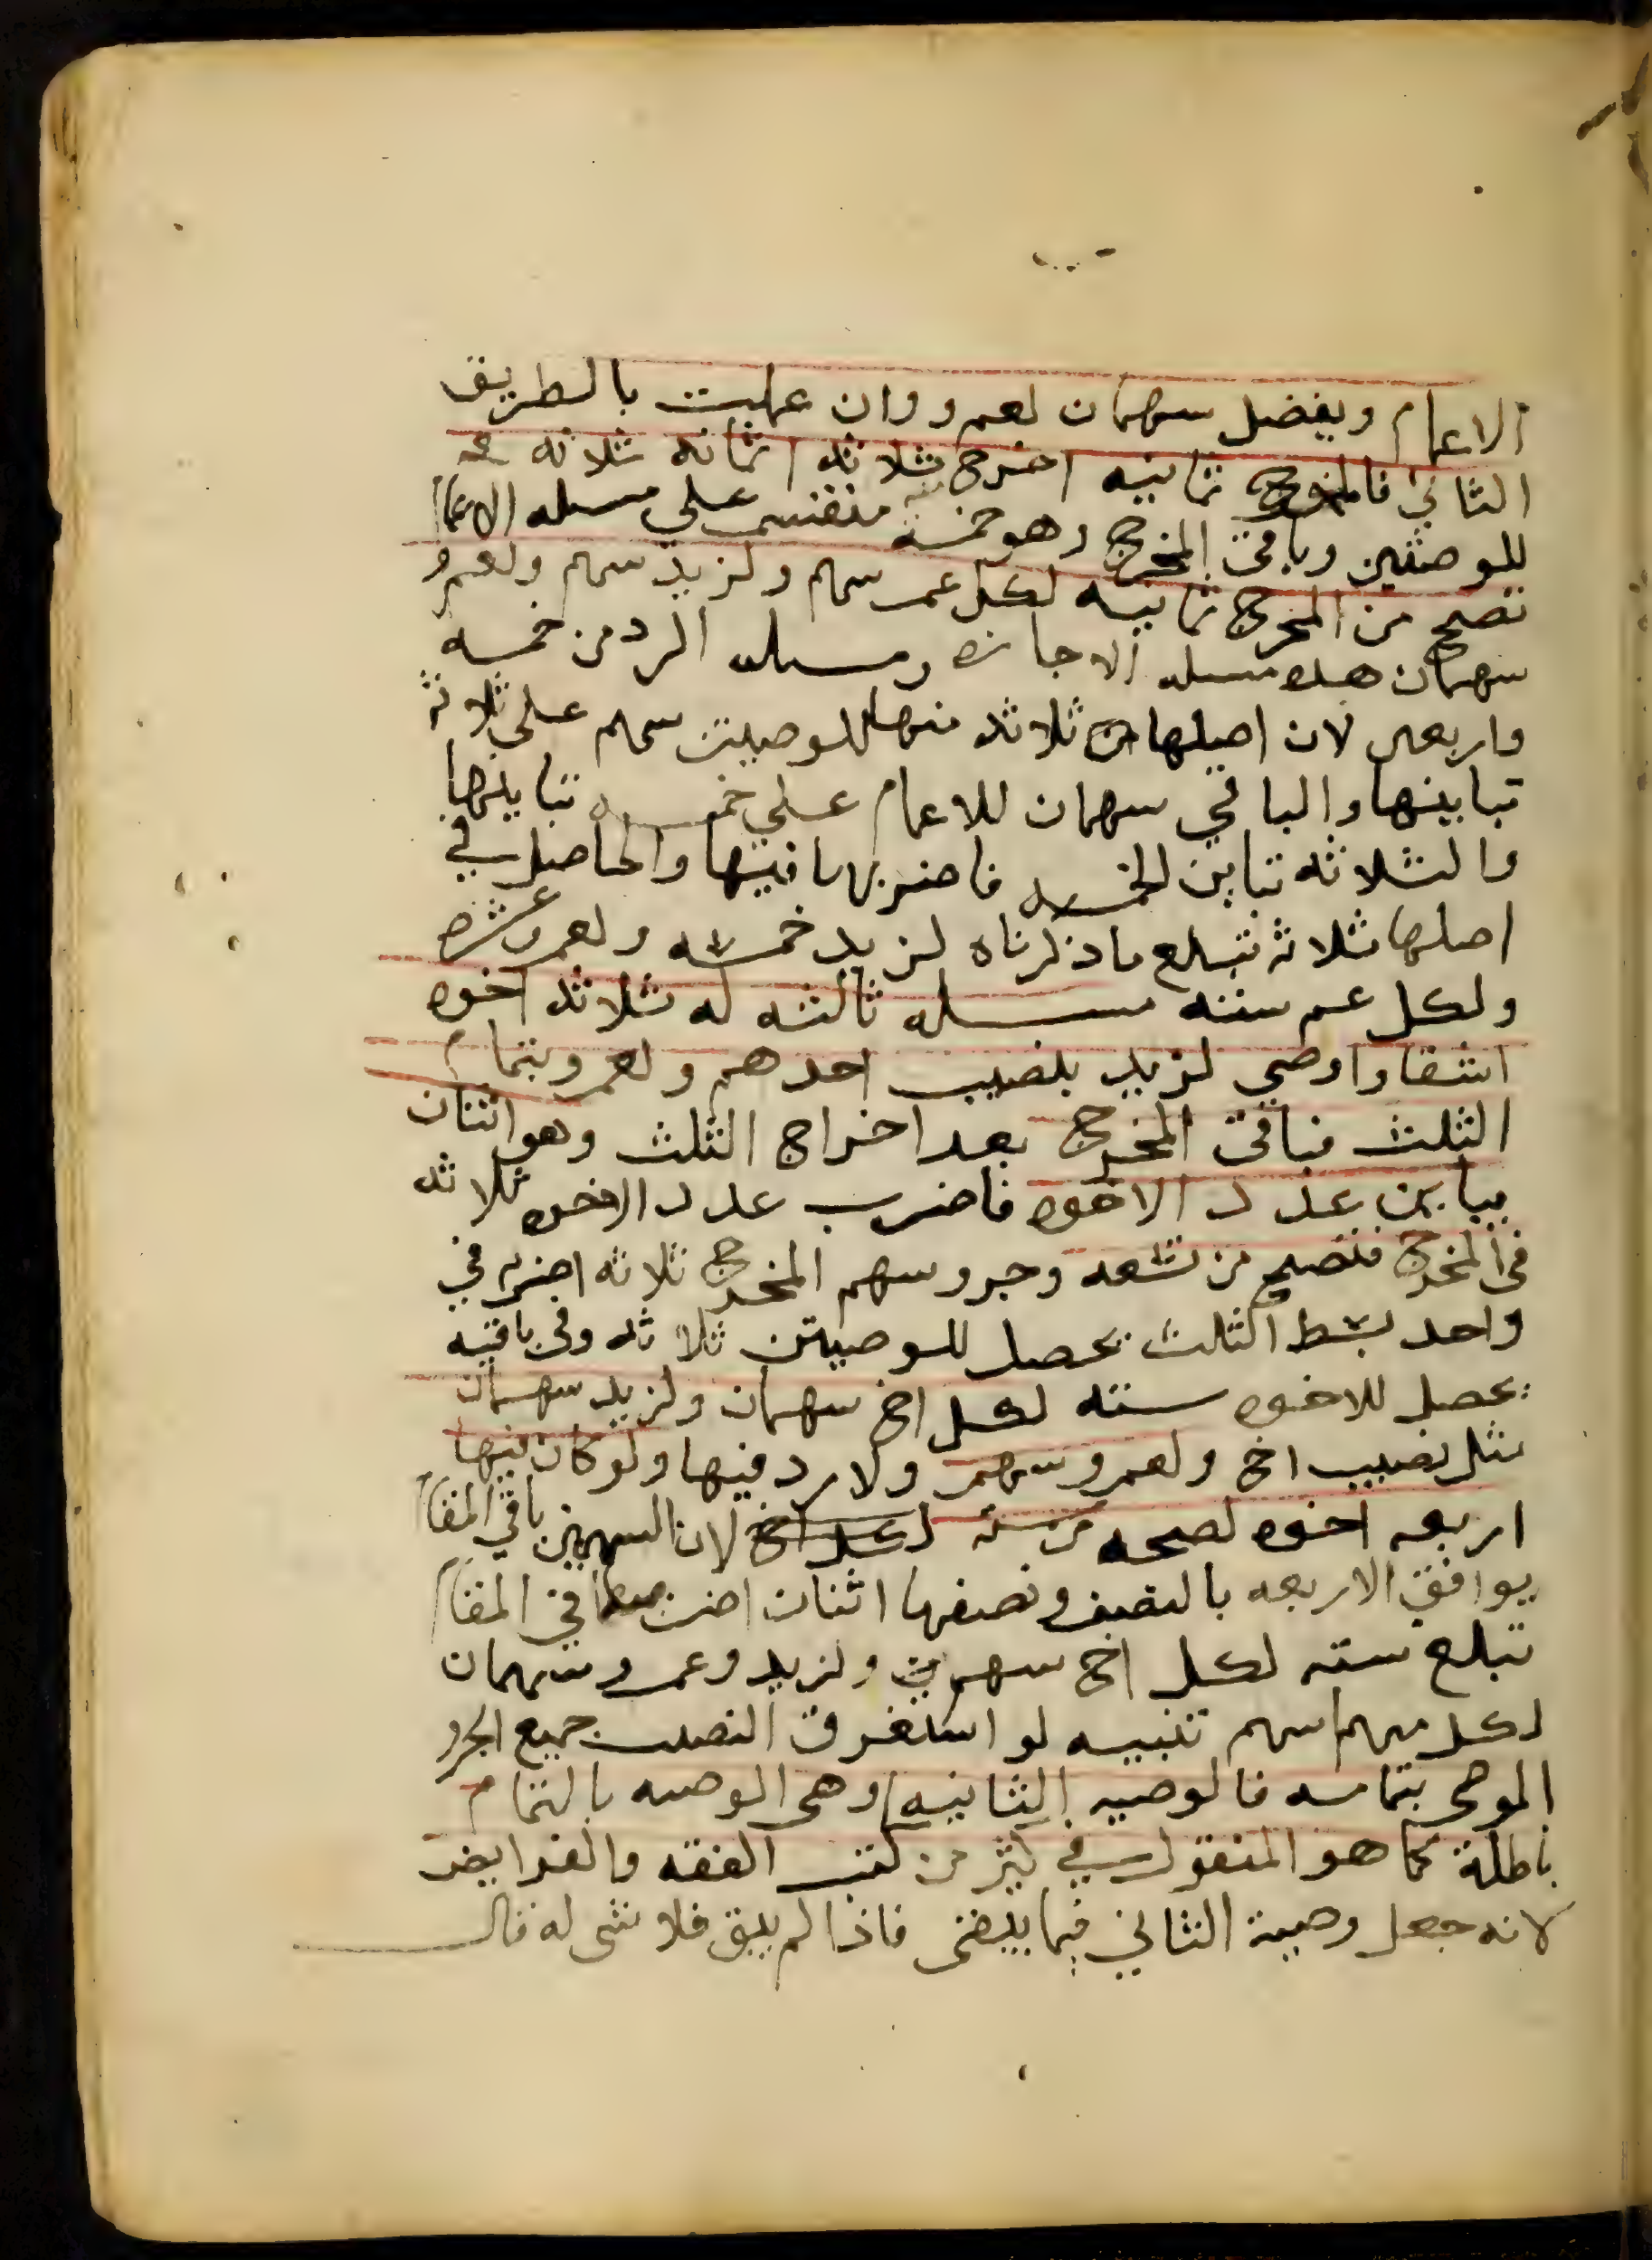 الاعمام ويفضل سهمان لعمرو وان عملت بالطريق
الثاني فالمخرج ثمانيه اخرج ثلاثه اثمانه ثلاثه
للوصيتين وباقي المخرج وهو خمسة منقسم على مسله الاعمام
تصح من المخرج ثمانيه لكل عم سهم ولزيد سهم ولعمرو
سهمان هذه مسله الاجازه ومسله الرد من خمسه
واربعين لان اصلها من ثلاثه منها للوصيتين سهم على ثلاثه
تباينها والباقي سهمان للاعمام على خمسه تباينها
والثلاثه تباين الخمسه فاضربها فيها والحاصل في
اصلها ثلاثه تبلغ ما ذكرناه لزيد خمسه ولعمرو عشره
ولكل عم سته مسله ثالثه له ثلاثه اخوه
اشقا واوصي لزيد بنصيب احدهم ولعمرو بتمام
الثلث فباقي المخرج بعد اخراج الثلث وهو اثنان
يباين عدد الاخوه فاضرب عدد الاخوه ثلاثه
في المخرج فتصح من تسعه وجزو سهم المخرج ثلاثه اضربه في
واحد بسط الثلث يحصل للوصيتين ثلاثه وفي باقيه
يحصل للاخوه سته لكل اخ سهمان ولزيد سهمان
مثل نصيب اخ ولعمرو سهم ولا رد فيها ولو كان فيها
اربعه اخوه لصحه من سته لكل اخ لان السهمين باقي المقام
يوافق الاربعه بالنصف ونصفها اثنان اضربهما في المقام
تبلغ سته لكل اخ سهم ولزيد وعمرو سهمان
لكل منهما سهم تنبيه لو استغرق النصيب جميع الجزو
الموصى بتمامه فالوصيه الثانيه وهي الوصيه بالتمام
باطلة كما هو المنقول في كثير من كتب الفقه والفرايض
لانه جعل وصية الثاني فيما يبقى فاذا لم يبق فلا شى له قال